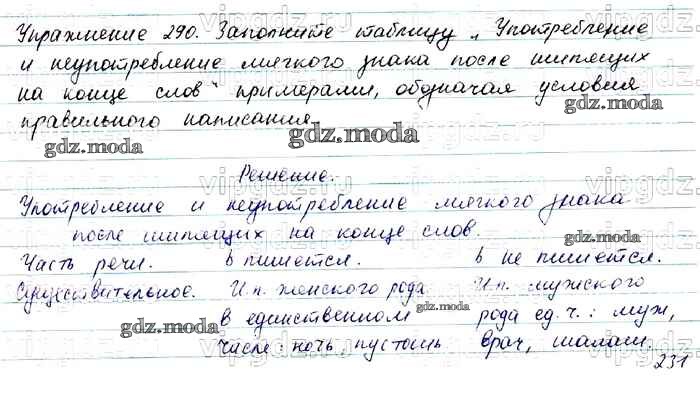 Упражнение 290. Заполните таблицу „Употребление
и неупотребление мягкого знака после шипящих
на конце слов“ примерами, обозначая условия
правильного написания.
gdz.moda
gdz.moda
gdz.moda
Решение.
Употребление и неупотребление мягкого знака
после шипящих на конце слов.
gdz.moda
Часть речи. ь пишется. ь не пишется.
Существительное. И.п. женского рода И.п. мужского
gdz.moda
gdz.moda
в единственном рода ед.ч.: муж,
gdz.moda
числе: ночь, пустошь врач, шалаш.
231
vipgdz.ru